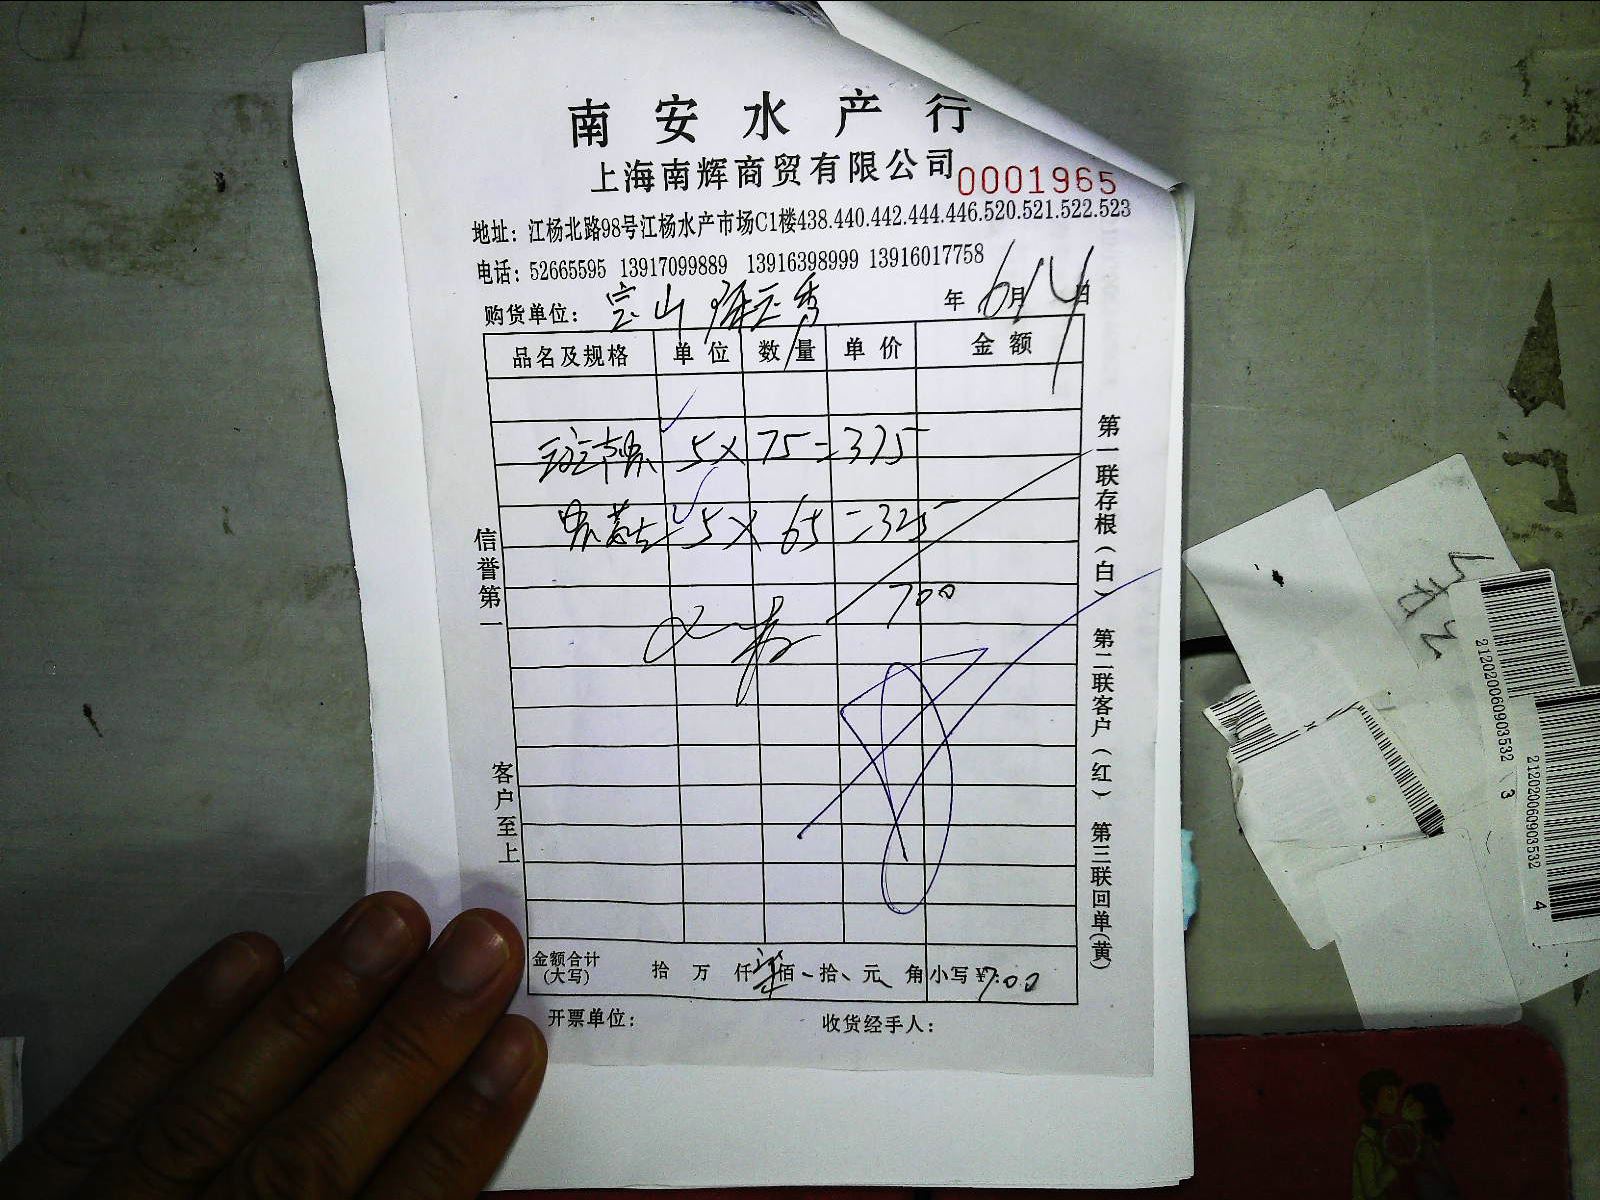 南安水产行
上海南辉商贸有限公司 0001965
地址：江杨北路98号江杨水产市场C1楼438.440.442.444.446.520.521.522.523
电话：52665595 13917099889 13916398999 13916017758
购货单位：宝山 年6月14日
品名及规格 单位 数量 单价 金额
5×75=375
=5×65=325
700
金额合计(大写) 拾 万 仟柒佰 拾 元 角 小写¥700
开票单位： 收货经手人：
信誉第一 客户至上
第一联存根(白) 第二联客户(红) 第三联回单(黄)
212020060903532 3
212020060903532 4